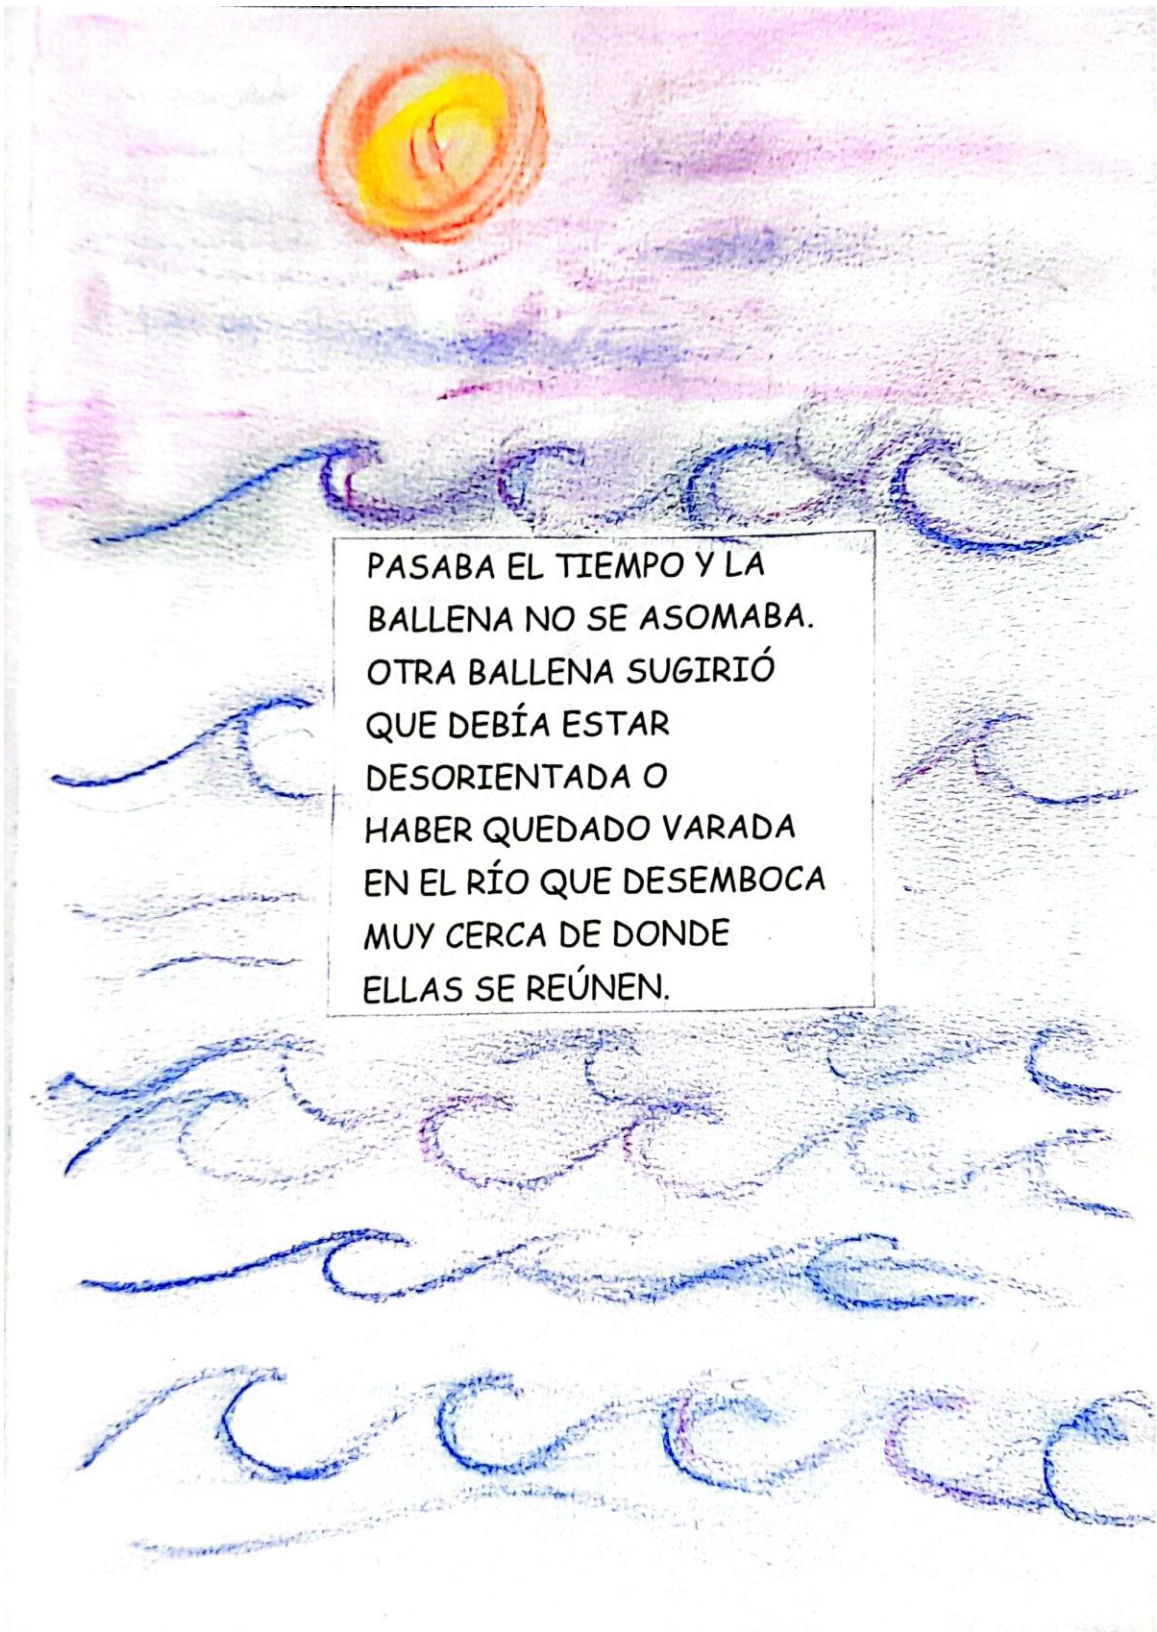 PASABA EL TIEMPO Y LA
BALLENA NO SE ASOMABA.
OTRA BALLENA SUGIRIÓ
QUE DEBÍA ESTAR
DESORIENTADA O
HABER QUEDADO VARADA
EN EL RÍO QUE DESEMBOCA
MUY CERCA DE DONDE
ELLAS SE REÚNEN.